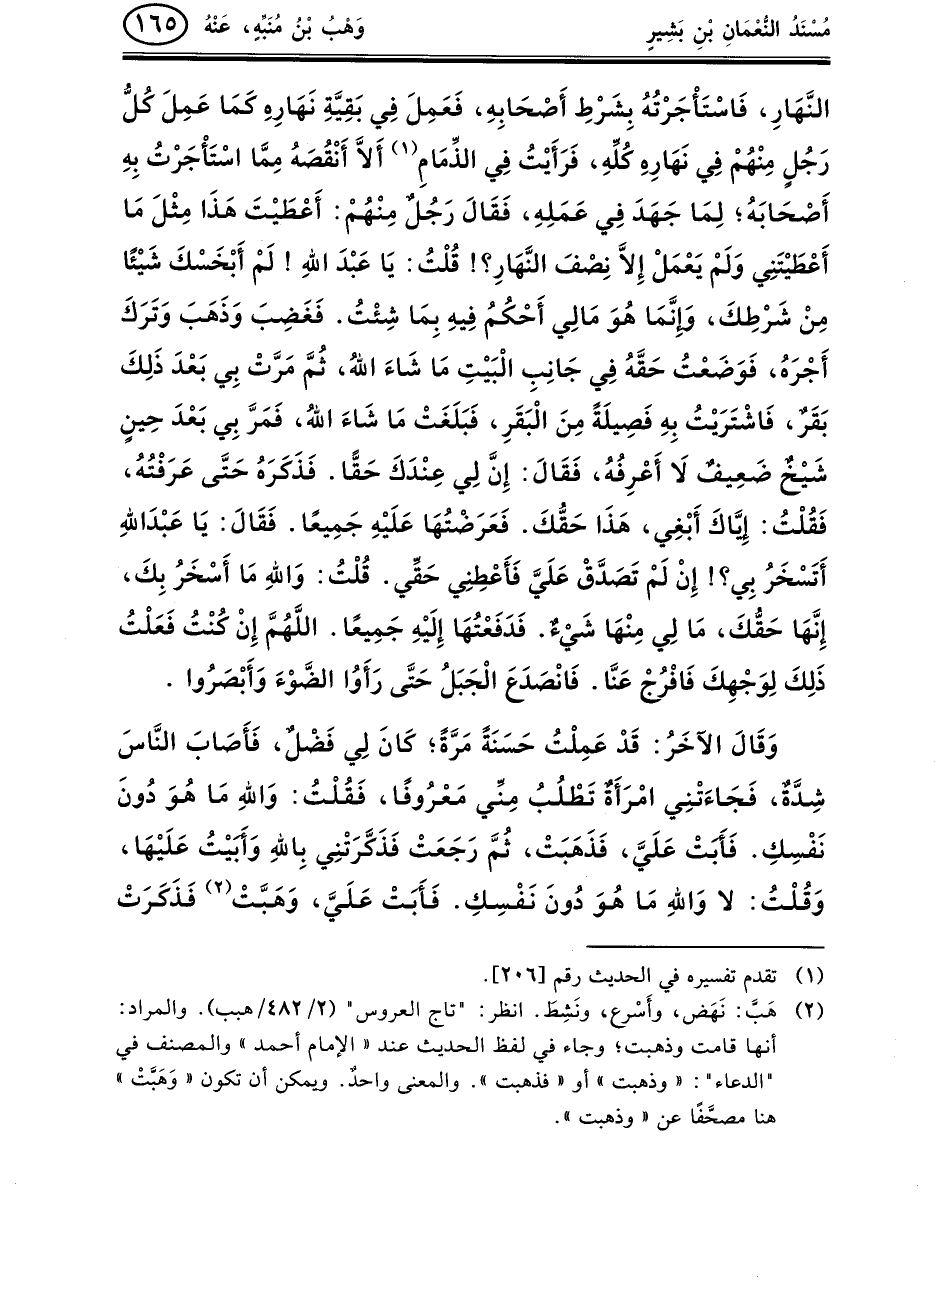 مُسْنَدُ النُّعْمَانِ بْنِ بَشِيرٍ وَهْبُ بْنُ مُنَبِّهٍ، عَنْهُ ١٦٥
النَّهَارِ، فَاسْتَأْجَرْتُهُ بِشَرْطِ أَصْحَابِهِ، فَعَمِلَ فِي بَقِيَّةِ نَهَارِهِ كَمَا عَمِلَ كُلُّ
رَجُلٍ مِنْهُمْ فِي نَهَارِهِ كُلِّهِ، فَرَأَيْتُ فِي الذِّمَامِ(١) أَلاَّ أَنْقُصَهُ مِمَّا اسْتَأْجَرْتُ بِهِ
أَصْحَابَهُ؛ لِمَا جَهَدَ فِي عَمَلِهِ، فَقَالَ رَجُلٌ مِنْهُمْ: أَعْطَيْتَ هَذَا مِثْلَ مَا
أَعْطَيْتَنِي وَلَمْ يَعْمَلْ إِلاَّ نِصْفَ النَّهَارِ؟! قُلْتُ: يَا عَبْدَ اللهِ! لَمْ أَبْخَسْكَ شَيْئًا
مِنْ شَرْطِكَ، وَإِنَّمَا هُوَ مَالِي أَحْكُمُ فِيهِ بِمَا شِئْتُ. فَغَضِبَ وَذَهَبَ وَتَرَكَ
أَجْرَهُ، فَوَضَعْتُ حَقَّهُ فِي جَانِبِ الْبَيْتِ مَا شَاءَ اللهُ، ثُمَّ مَرَّتْ بِي بَعْدَ ذَلِكَ
بَقَرٌ، فَاشْتَرَيْتُ بِهِ فَصِيلَةً مِنَ الْبَقَرِ، فَبَلَغَتْ مَا شَاءَ اللهُ، فَمَرَّ بِي بَعْدَ حِينٍ
شَيْخٌ ضَعِيفٌ لَا أَعْرِفُهُ، فَقَالَ: إِنَّ لِي عِنْدَكَ حَقًّا. فَذَكَرَهُ حَتَّى عَرَفْتُهُ،
فَقُلْتُ: إِيَّاكَ أَبْغِي، هَذَا حَقُّكَ. فَعَرَضْتُهَا عَلَيْهِ جَمِيعًا. فَقَالَ: يَا عَبْدَاللهِ
أَتَسْخَرُ بِي؟! إِنْ لَمْ تَصَدَّقْ عَلَيَّ فَأَعْطِنِي حَقِّي. قُلْتُ: وَاللهِ مَا أَسْخَرُ بِكَ،
إِنَّهَا حَقُّكَ، مَا لِي مِنْهَا شَيْءٌ. فَدَفَعْتُهَا إِلَيْهِ جَمِيعًا. اللَّهُمَّ إِنْ كُنْتُ فَعَلْتُ
ذَلِكَ لِوَجْهِكَ فَافْرُجْ عَنَّا. فَانْصَدَعَ الْجَبَلُ حَتَّى رَأَوُا الضَّوْءَ وَأَبْصَرُوا.
وَقَالَ الآخَرُ: قَدْ عَمِلْتُ حَسَنَةً مَرَّةً؛ كَانَ لِي فَضْلٌ، فَأَصَابَ النَّاسَ
شِدَّةٌ، فَجَاءَتْنِي امْرَأَةٌ تَطْلُبُ مِنِّي مَعْرُوفًا، فَقُلْتُ: وَاللهِ مَا هُوَ دُونَ
نَفْسِكِ. فَأَبَتْ عَلَيَّ، فَذَهَبَتْ، ثُمَّ رَجَعَتْ فَذَكَّرَتْنِي بِاللهِ وَأَبَيْتُ عَلَيْهَا،
وَقُلْتُ: لا وَاللهِ مَا هُوَ دُونَ نَفْسِكِ. فَأَبَتْ عَلَيَّ، وَهَبَّتْ(٢) فَذَكَرَتْ
(١) تقدم تفسيره في الحديث رقم [٢٠٦].
(٢) هَبَّ: نَهَض، وأَسْرع، ونَشِطَ. انظر: "تاج العروس" (٤٨٢/٢/هبب). والمراد:
أنها قامت وذهبت؛ وجاء في لفظ الحديث عند « الإمام أحمد » والمصنف في
"الدعاء": « وذهبت » أو « فذهبت ». والمعنى واحدٌ. ويمكن أن تكون « وَهَبَّتْ »
هنا مصحَّفًا عن « وذهبت ».